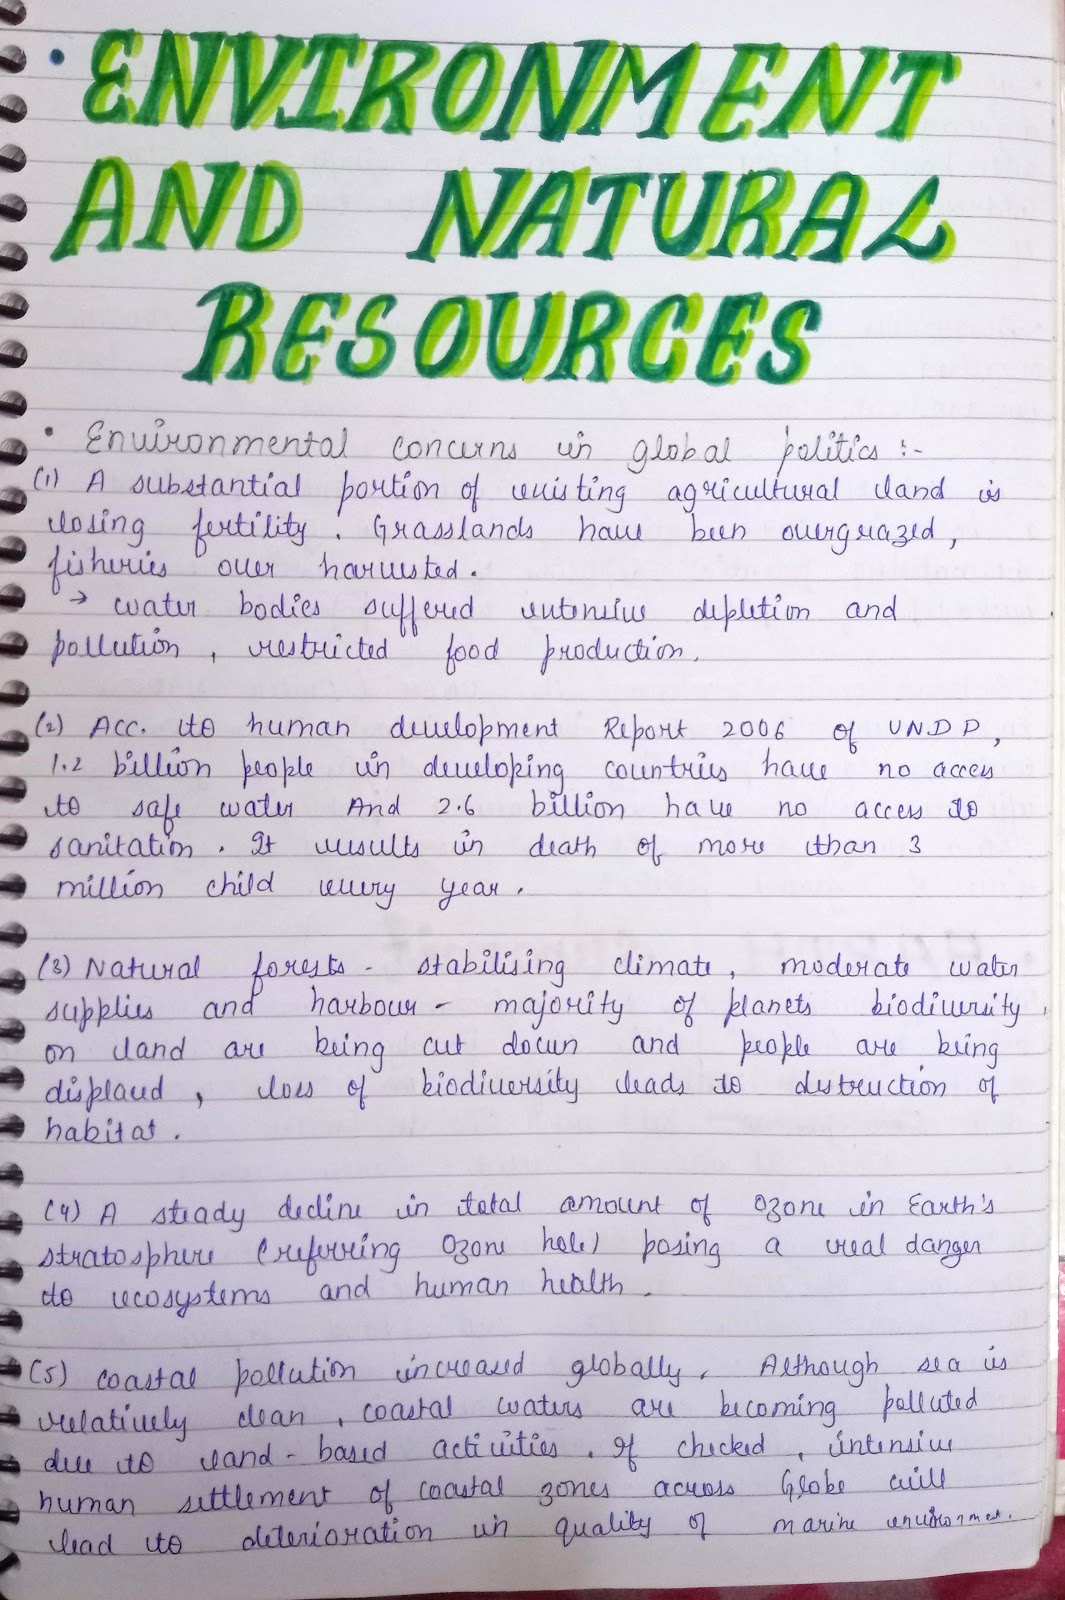 • ENVIRONMENT
AND NATURAL
RESOURCES
• Environmental concerns in global politics :-
(1) A substantial portion of existing agricultural land is
losing fertility. Grasslands have been overgrazed,
fisheries over harvested.
→ water bodies suffered extensive depletion and
pollution, restricted food production.
(2) Acc. to human development Report 2006 of UNDP,
1.2 billion people in developing countries have no acces
to safe water And 2.6 billion have no access to
sanitation. It results in death of more than 3
million child every year.
(3) Natural forests - stabilising climate, moderate water
supplies and harbour - majority of planets biodiversity
on land are being cut down and people are being
displaced, loss of biodiversity leads to destruction of
habitat.
(4) A steady decline in total amount of Ozone in Earth's
stratosphere (referring Ozone hole) posing a real danger
to ecosystems and human health.
(5) coastal pollution increased globally. Although sea is
relatively clean, coastal waters are becoming polluted
due to land-based activities. If checked, intensive
human settlement of coastal zones across Globe will
lead to deterioration in quality of marine environment.